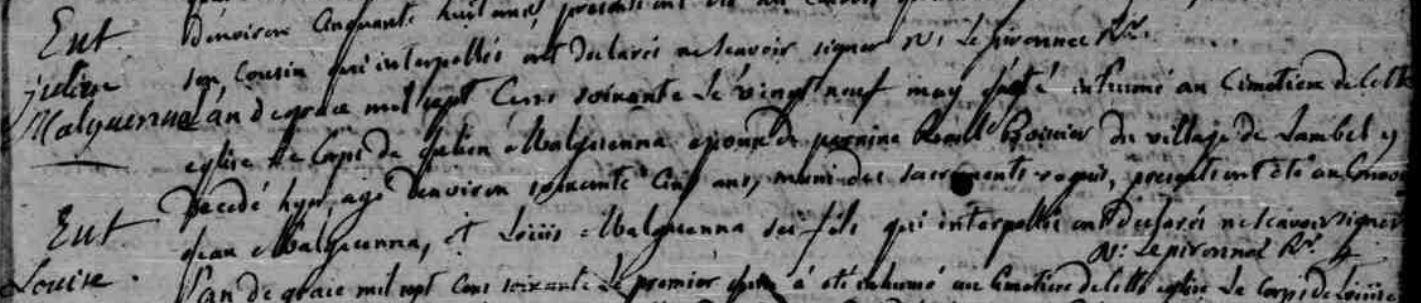 d'environ cinquante huit ans, presents ont
Ent
son cousin qui interpellés ont declarés ne scavoir signer N: Le pironnec Rr.
julien
Malguenna
L'an de grace mil sept cens soixante Le vingt neuf may a été inhumé au Cimetiere de cette
eglise Le Corps de Julien Malguenna epoux de perrine du village de Lambel y
Decedé hyer, agé d'environ soixante Cinq ans, muni des sacrements requis, presents ont été au Convoi
Ent
jean Malguenna, et Loüis Malguenna ses fils qui interpellés ont declarés ne scavoir signer
N: Le pironnec Rr.
Louise
L'an de grace mil sept Cens soixante Le premier a été inhumé au Cimetiere de cette eglise Le Corps de Loüise